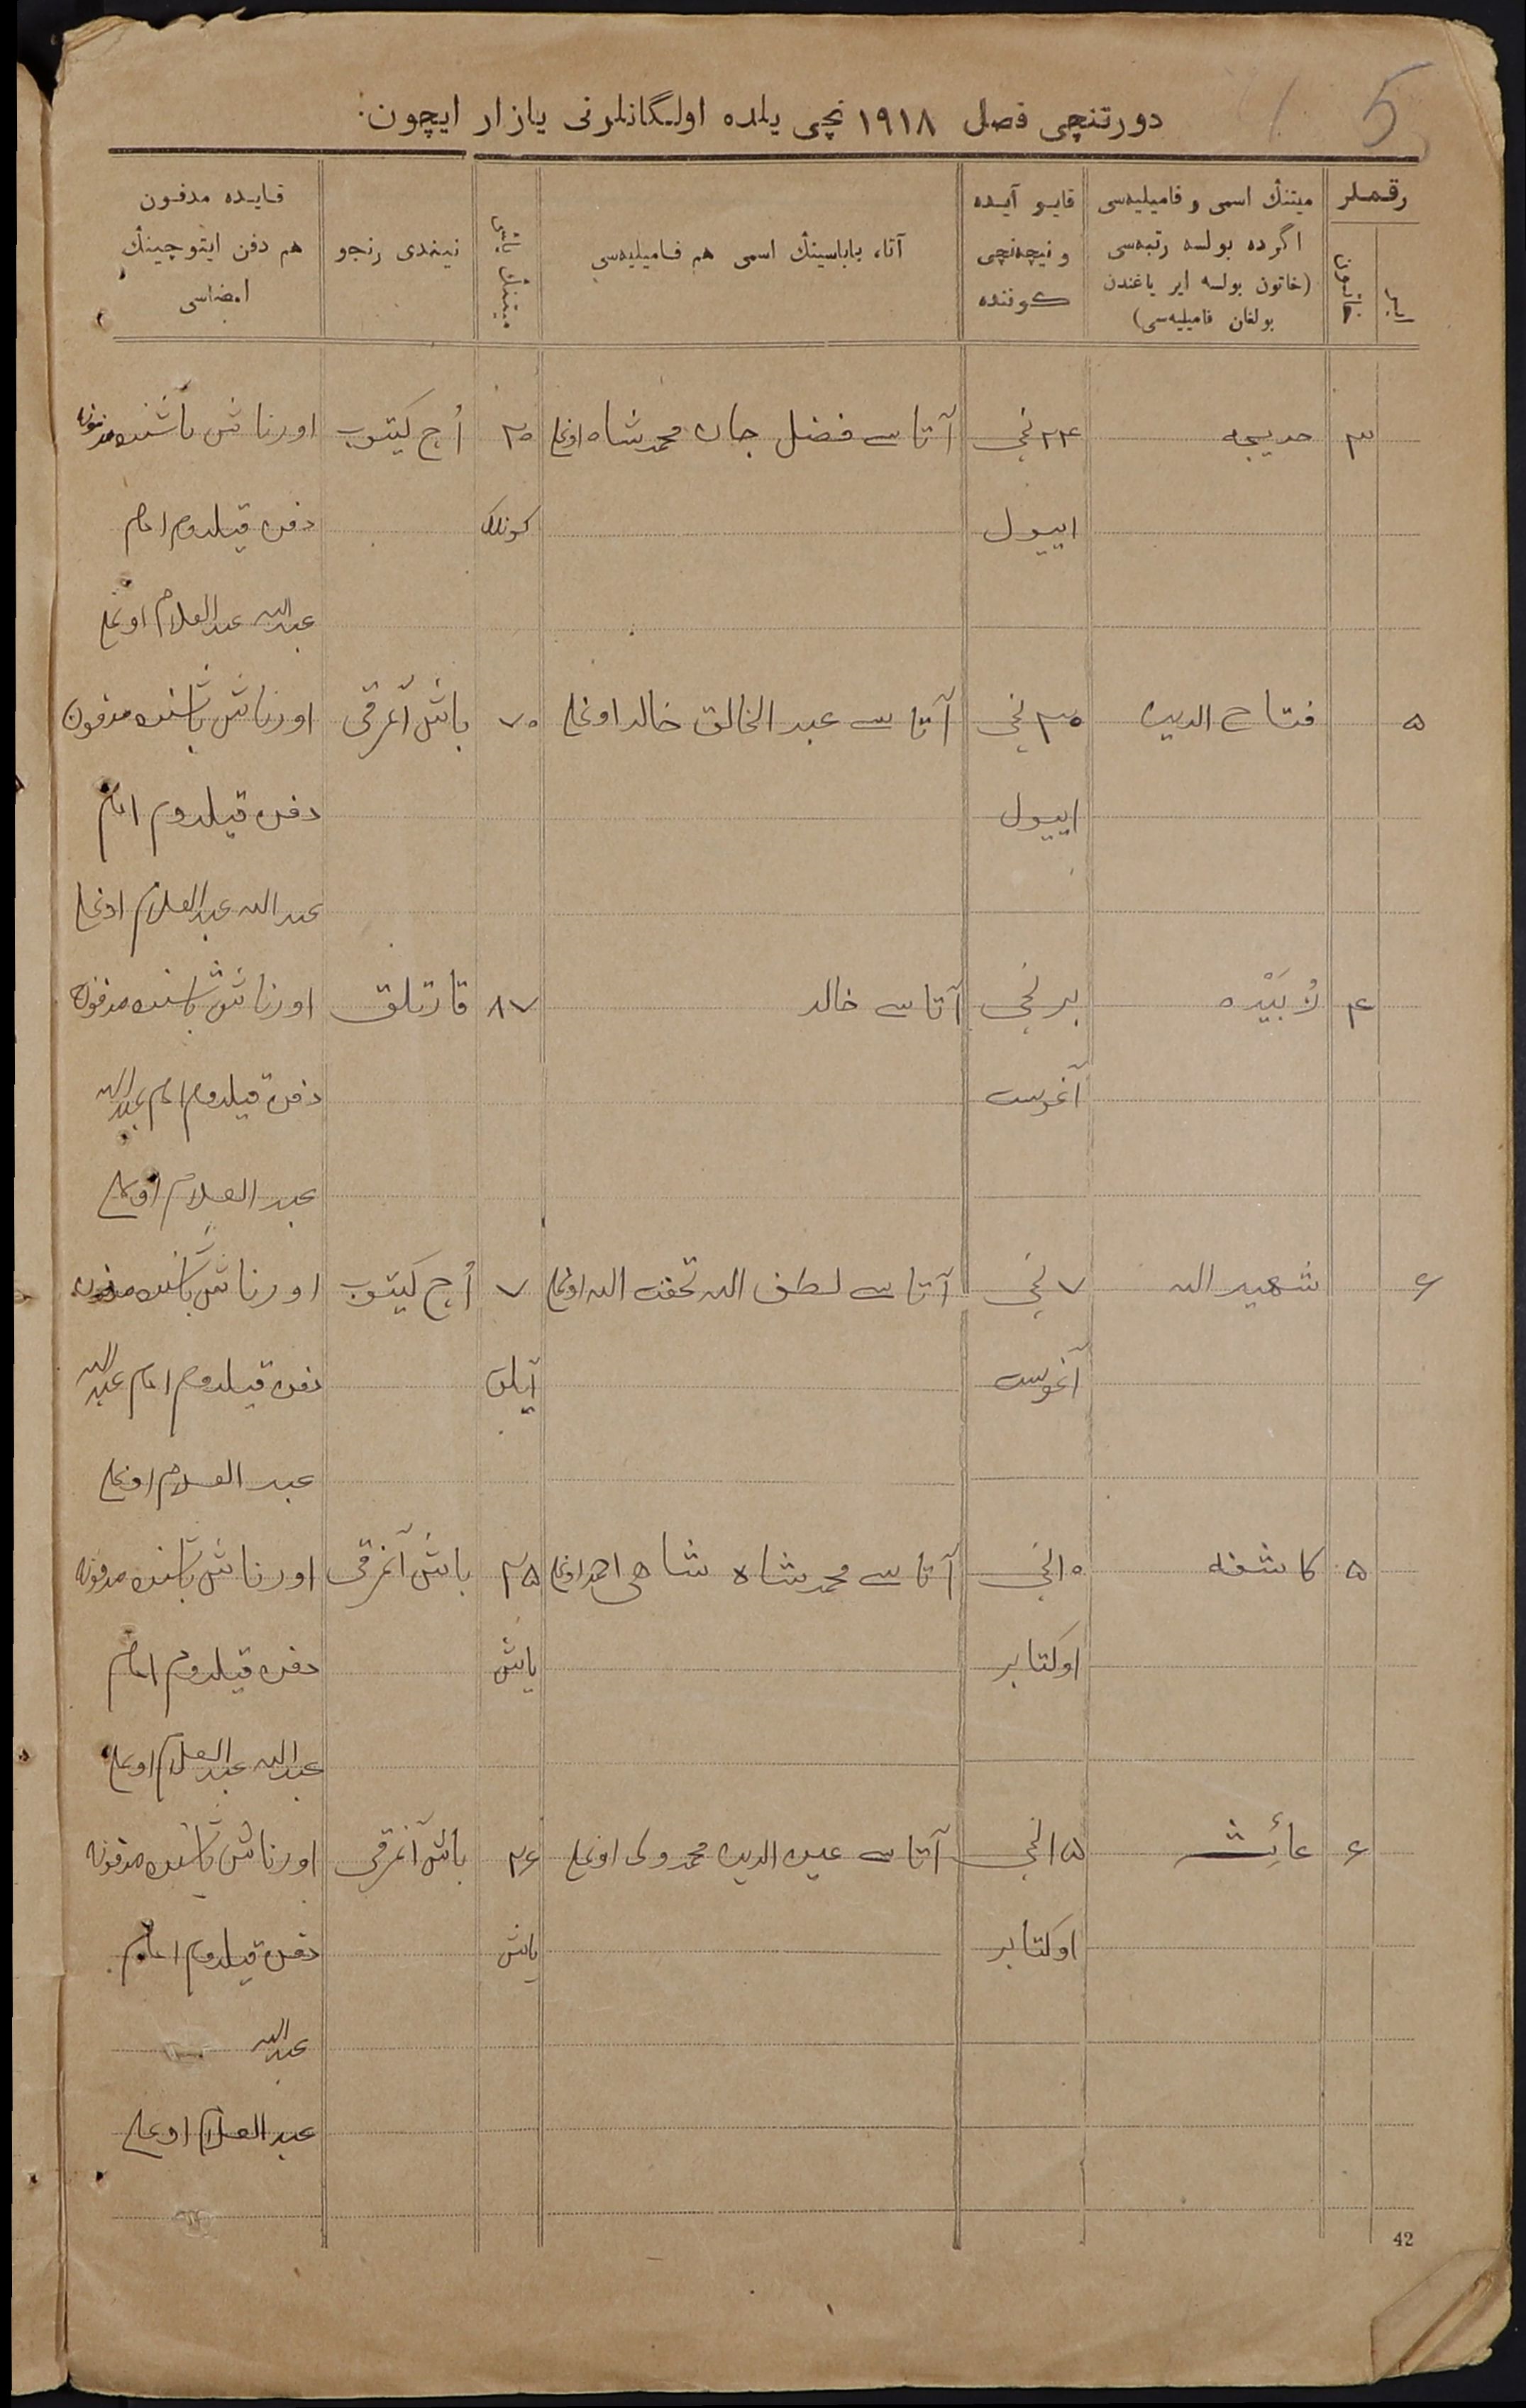 5
دورتنچی فصل ۱۹۱۸ نچی یلده اولگانلرنی یازار ایچون:
رقملر
ایر
خاتون
میتنڭ اسمی و فامیلیه‌سی
اگرده بولسه رتبه‌سی
(خاتون بولسه ایر یاغندن
بولغان فامیلیه‌سی)
قایو آیده
و نیچه‌نچی
کوننده
آتا، باباسینڭ اسمی هم فامیلیه‌سی
میتنڭ یاشی
نیندی رنجو
قایده مدفون
هم دفن ایتوچینڭ
امضاسی
۳ خدیجه ۲۴ نچی آتاسی فضل جان محمدشاه اوغلی ۲۰ أچ کیتوب اورناش باشنده مدفون
اییول کونلك دفن قیلدوم امام
عبدالله عبدالعلام اوغلی
۵ فتاح الدین ۳۰ نچی آتاسی عبد الخالق خالد اوغلی ۷۰ باش آغرقی اورناش باشنده مدفون
اییول دفن قیلدوم امام
عبدالله عبدالعلام اوغلی
۴ لُابَیْده برنچی آتاسی خالد ۸۷ قارتلق اورناش باشنده مدفون
آغوست دفن قیلدوم امام عبدالله
عبد العلام اوغلی
۶ شهید الله ۷ نچی آتاسی لطف الله تحفت الله اوغلی ۷ أچ کیتوب اورناش باشنده مدفون
آغوست آیلق دفن قیلدوم امام عبدالله
عبد العلام اوغلی
۵ کاشفه ۱۰ نچی آتاسی محمدشاه شاهی احمد اوغلی ۲۵ باش آغرقی اورناش باشنده مدفون
اوکتابر یاش دفن قیلدوم امام
عبدالله عبدالعلام اوغلی
۶ عائشه ۱۵ نچی آتاسی عین الدین محمدولی اوغلی ۲۶ باش آغرقی اورناش باشنده مدفون
اوکتابر یاش دفن قیلدوم امام
عبدالله
عبد العلام اوغلی
42